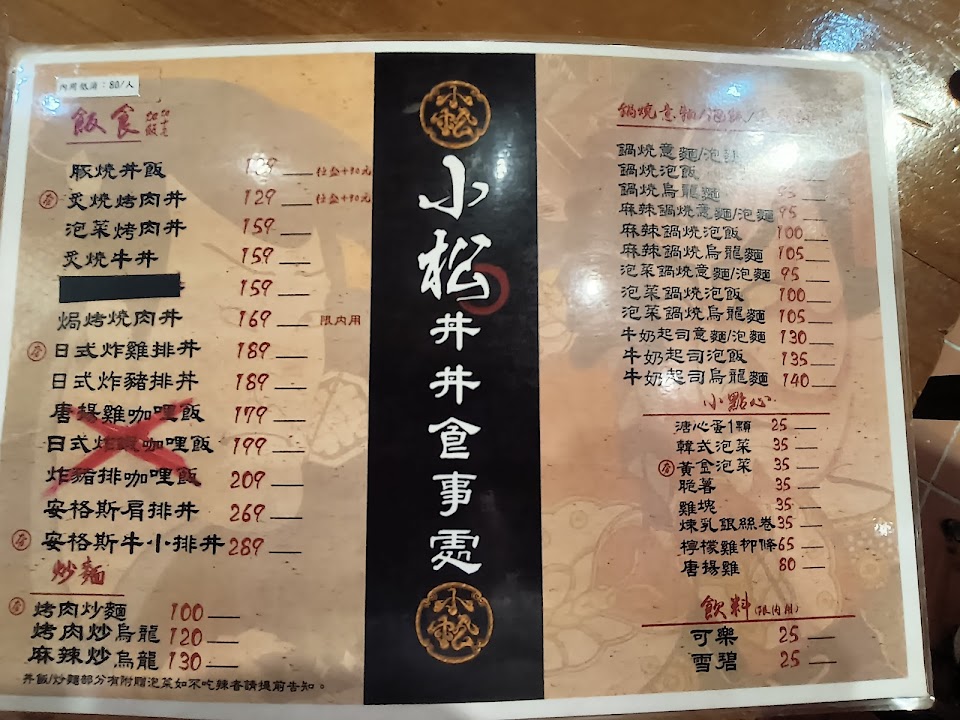 內用低消：80/人
飯食
豚燒丼飯 129 任盒+90元
炙燒烤肉丼 129 任盒+90元
泡菜烤肉丼 159
炙燒牛丼 159
159
焗烤燒肉丼 169 限內用
日式炸雞排丼 189
日式炸豬排丼 189
唐揚雞咖哩飯 179
日式炸雞咖哩飯 199
炸豬排咖哩飯 209
安格斯肩排丼 269
安格斯牛小排丼 289
炒麵
烤肉炒麵 100
烤肉炒烏龍 120
麻辣炒烏龍 130
丼飯/炒麵部分有附贈泡菜如不吃辣者請提前告知。
小松
小松丼丼食事処
小松
鍋燒意麵/泡飯/
鍋燒意麵/泡麵
鍋燒泡飯
鍋燒烏龍麵
麻辣鍋燒意麵/泡麵 95
麻辣鍋燒泡飯 100
麻辣鍋燒烏龍麵 105
泡菜鍋燒意麵/泡麵 95
泡菜鍋燒泡飯 100
泡菜鍋燒烏龍麵 105
牛奶起司意麵/泡麵 130
牛奶起司泡飯 135
牛奶起司烏龍麵 140
小點心
溏心蛋1顆 25
韓式泡菜 35
黃金泡菜 35
脆薯 35
雞塊 35
煉乳銀絲卷 35
檸檬雞柳條 65
唐揚雞 80
飲料(限內用)
可樂 25
雪碧 25